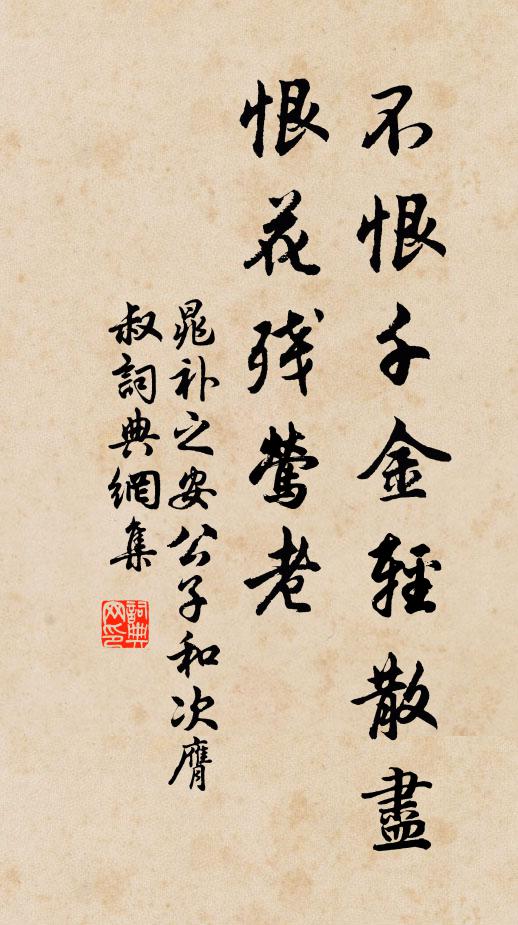 不恨千金輕散盡
恨花残鶯老
晁补之安公子和次膺
叔詞典網集
詞典网印